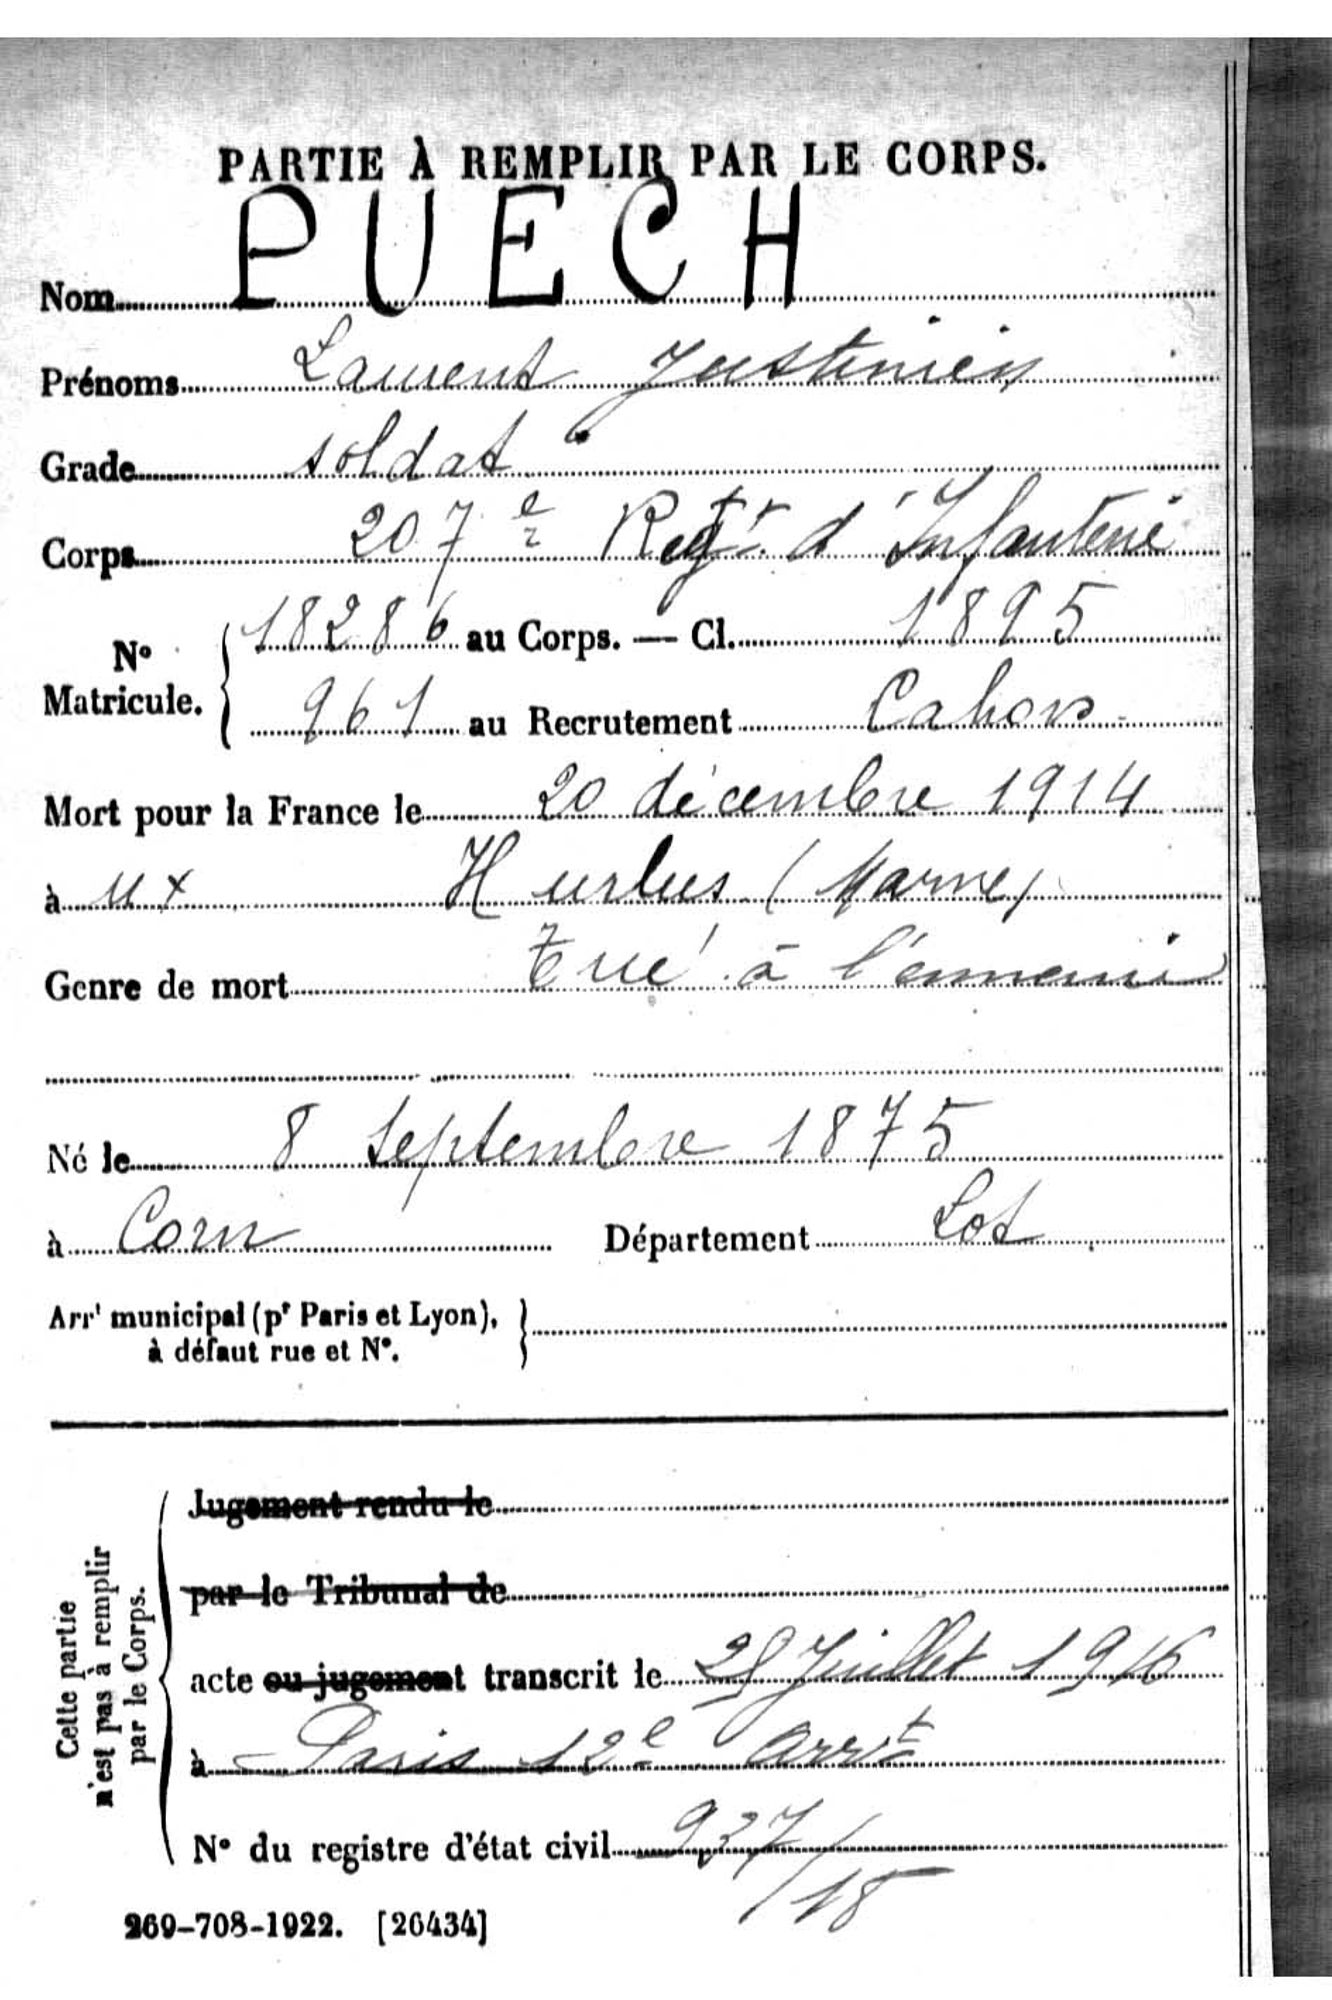 PARTIE À REMPLIR PAR LE CORPS.
Nom PUECH
Prénoms Laurent Justinien
Grade soldat
Corps 207e Regt d'Infanterie
No Matricule. { 18286 au Corps. — Cl. 1895
961 au Recrutement Cahors
Mort pour la France le 20 décembre 1914
à Hurlus (Marne)
Genre de mort Tué à l'ennemi
Né le 8 Septembre 1875
à Corn Département Lot
Arrt municipal (pr Paris et Lyon), }
à défaut rue et No.
Cette partie n'est pas à remplir par le Corps.
Jugement rendu le
par le Tribunal de
acte ou jugement transcrit le 28 Juillet 1916
à Paris 12e arrt
No du registre d'état civil 937/18
269-708-1922. [26434]